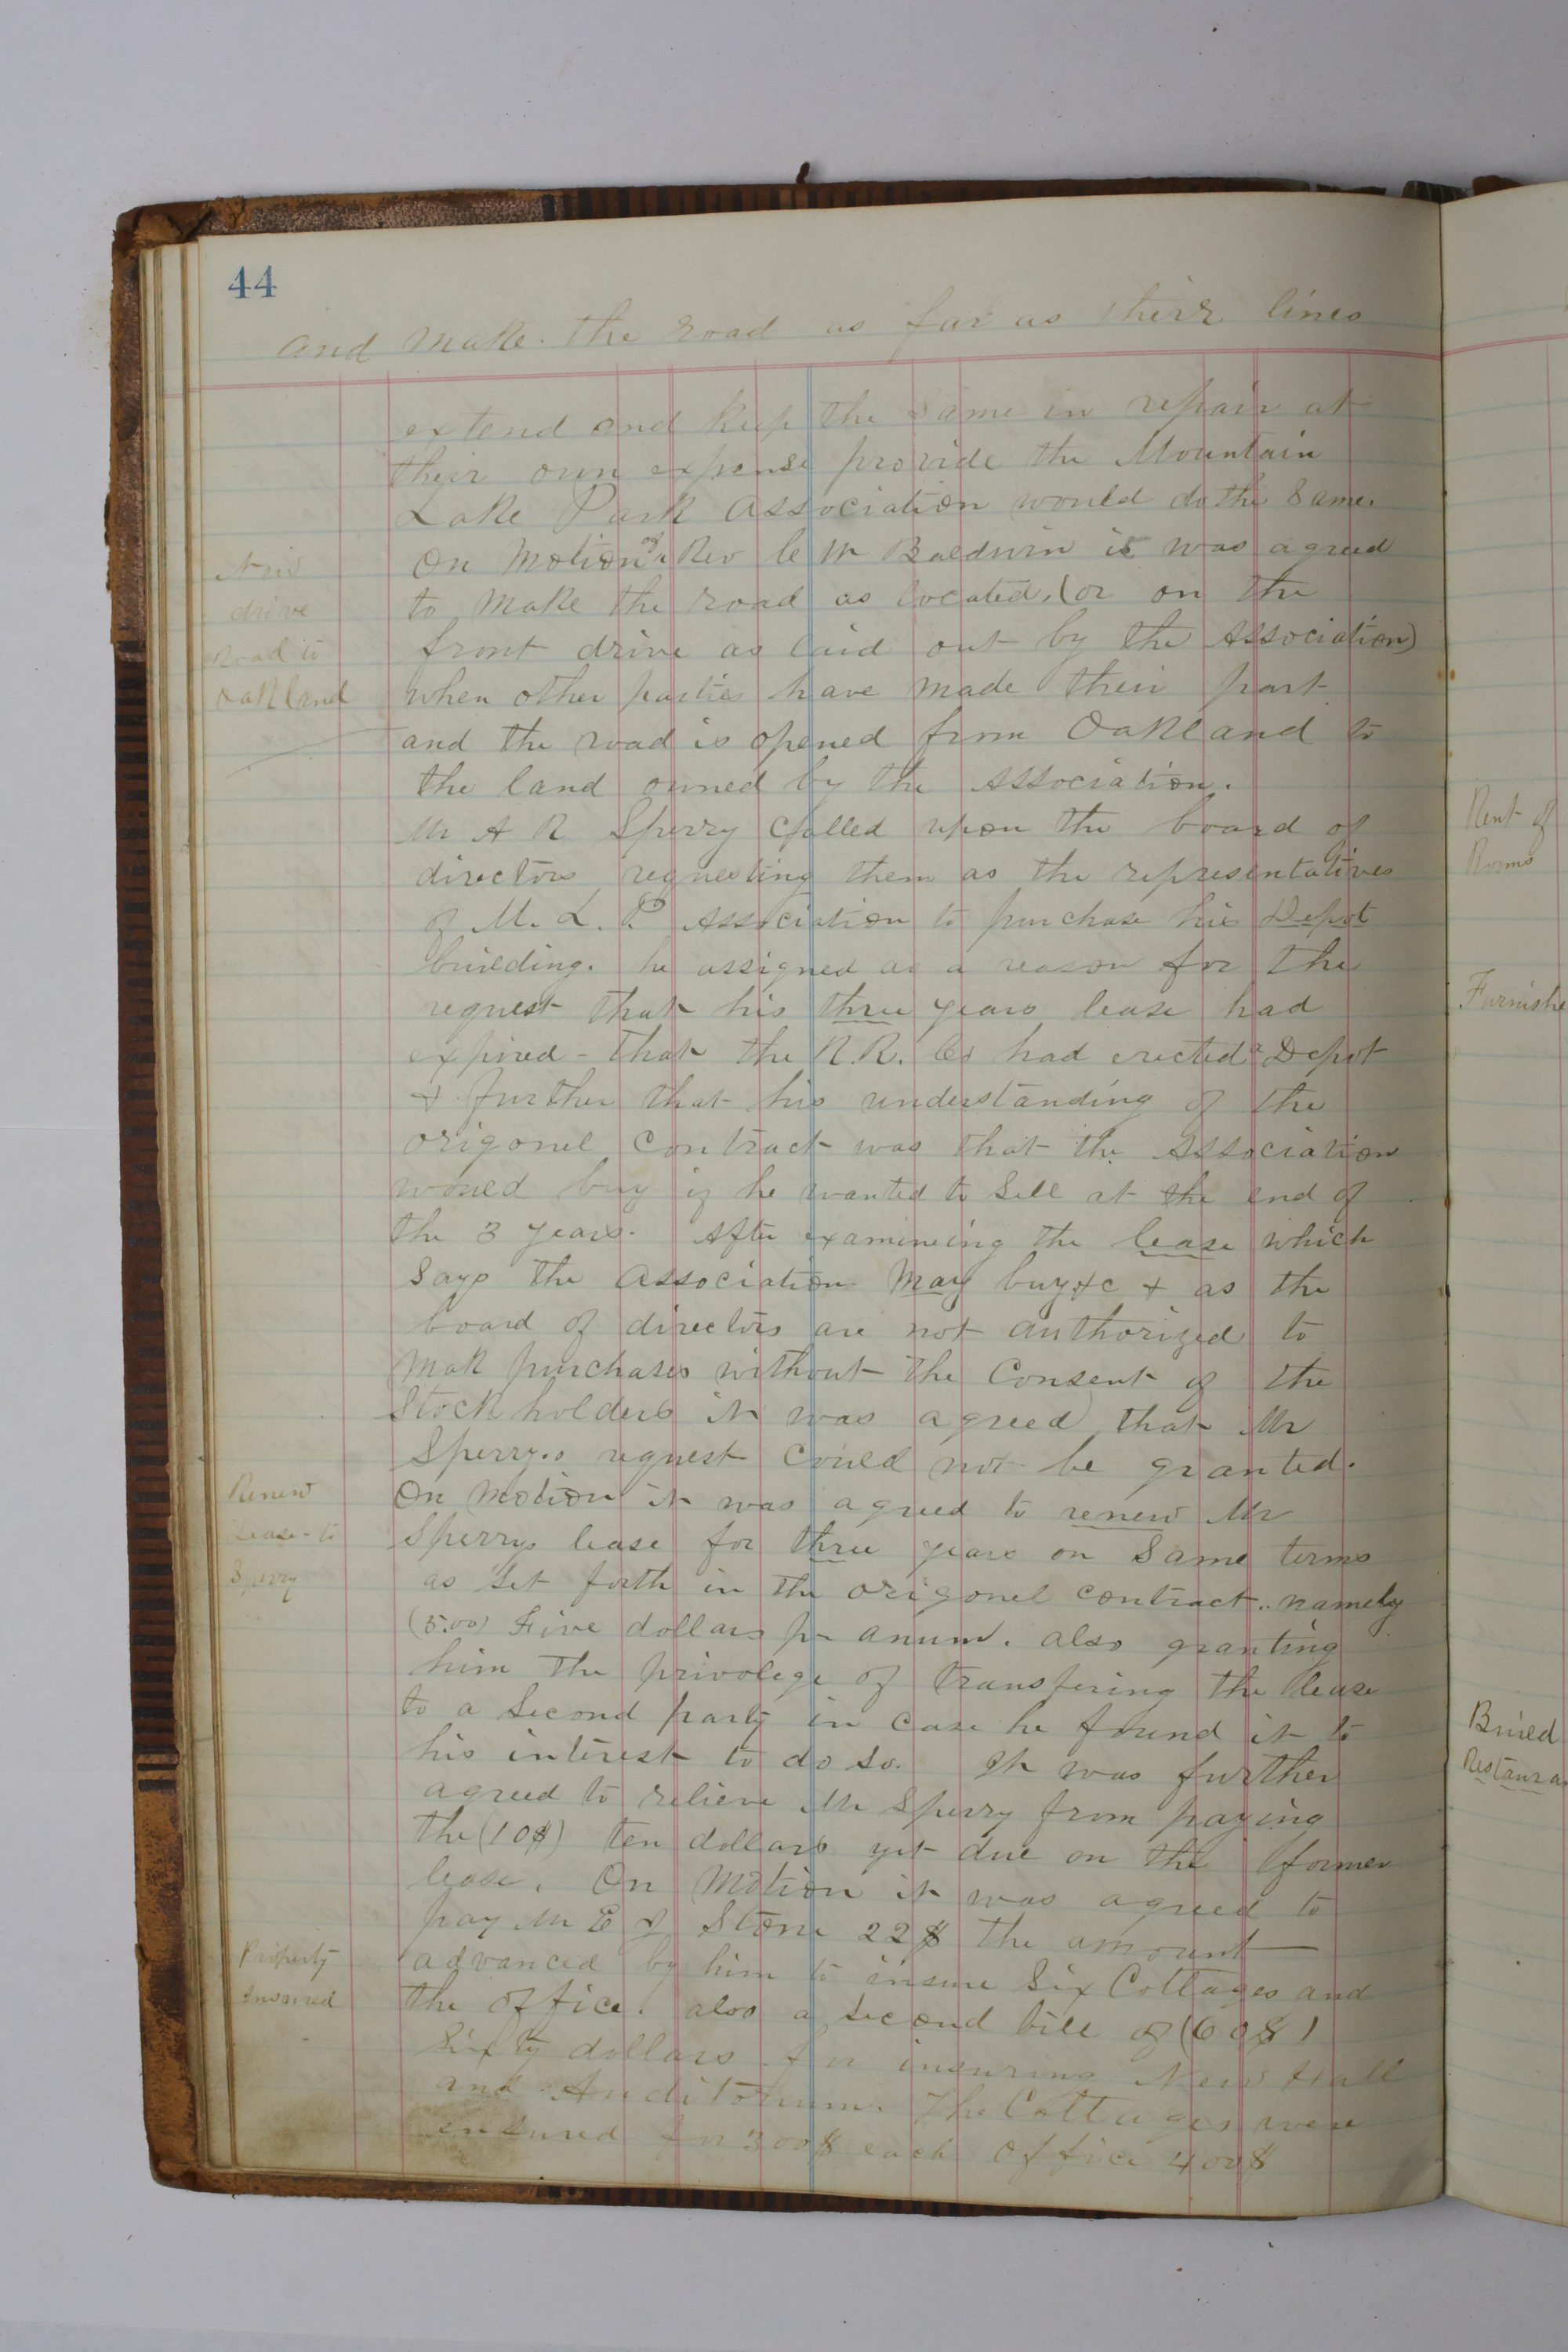 44
and make the road as far as theirr lines
extend and keep the same in repair at
their own expense provide the Mountain
Lake Park Association would do the same.
On motion of Rev C W Baldwin it was agreed
to make the road as located, (or on the
front drive as laid out by the Association)
when other parties have made their part
and the road is opened from Oakland to
the land owned by the Association.
New
drive
Road to
Oakland
Mr A R Sperry called upon the board of
directors requesting them as the representatives
of M. L. P. Association to purchase his Depot
building. he assigned as a reason for the
request that his three years lease had
expired - that the R.R. Co had erected a Depot
& further that his understanding of the
origonel contract was that the Association
would buy if he wanted to sell at the end of
the 3 years. After examineing the lease which
says the Association may buy &c & as the
board of directors are not authorized to
mak purchases without the consent of the
Stockholders it was agreed that Mr
Sperry.s request could not be granted.
On motion it was agreed to renew Mr
Sperrys lease for three years on same terms
as set forth in the origonel contract.. namely
(5.00) Five dollars pr anum. also granting
him the privolege of transfering the lease
to a second party in case he found it to
his interest to do so. It was further
agreed to relieve Mr Sperry from paying
the (10$) ten dollars yet due on the former
lease. On motion it was agreed to
Renew
Lease - to
Sperry
pay Mr E Stone 22$ the amount
advanced by him to insure Six Cottages and
the office. also a second bill of (60$)
Sixty dollars for insuring New Hall
and Auditorium. The Cottages were
ensured for 300$ each Office 400$
Property
Insured
Rent of
Rooms
Furnishe
Build
Restaura